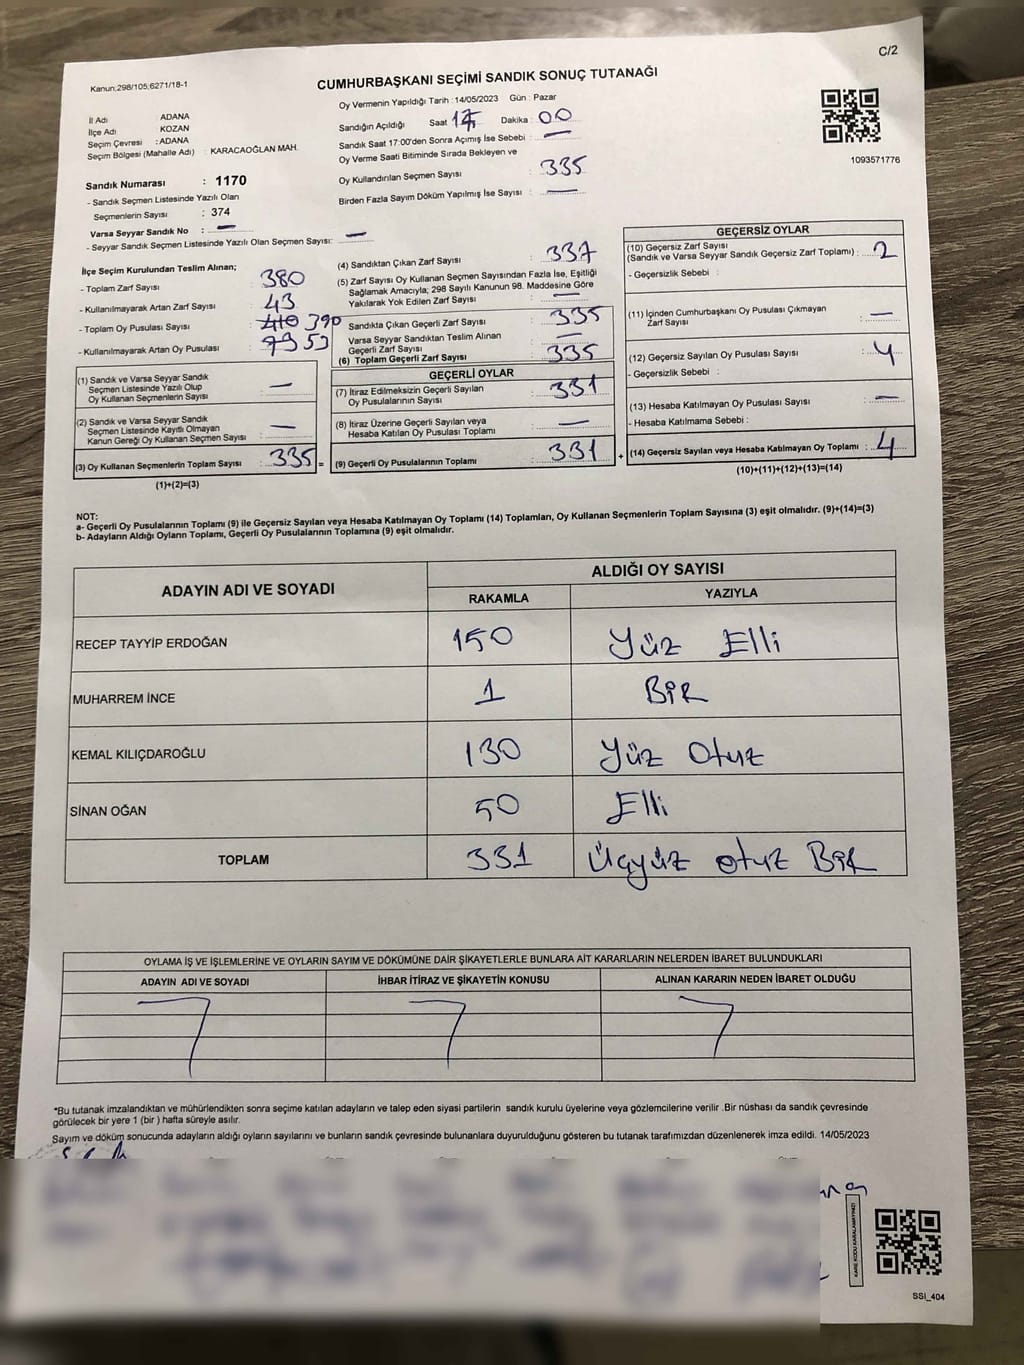 C/2
Kanun;298/105;6271/18-1
CUMHURBAŞKANI SEÇİMİ SANDIK SONUÇ TUTANAĞI
İl Adı : ADANA
İlçe Adı KOZAN
Seçim Çevresi : ADANA
Seçim Bölgesi (Mahalle Adı) : KARACAOĞLAN MAH.
Sandık Numarası : 1170
- Sandık Seçmen Listesinde Yazılı Olan
Seçmenlerin Sayısı : 374
Varsa Seyyar Sandık No : —
- Seyyar Sandık Seçmen Listesinde Yazılı Olan Seçmen Sayısı: —
Oy Vermenin Yapıldığı Tarih : 14/05/2023 Gün : Pazar
Sandığın Açıldığı Saat 17 Dakika : 00
Sandık Saat 17:00'den Sonra Açımış İse Sebebi : —
Oy Verme Saati Bitiminde Sırada Bekleyen ve
Oy Kullandırılan Seçmen Sayısı : 335
Birden Fazla Sayım Döküm Yapılmış İse Sayısı : —
1093571776
İlçe Seçim Kurulundan Teslim Alınan;
- Toplam Zarf Sayısı : 380
- Kullanılmayarak Artan Zarf Sayısı : 43
- Toplam Oy Pusulası Sayısı : 410 390
- Kullanılmayarak Artan Oy Pusulası :
(1) Sandık ve Varsa Seyyar Sandık
Seçmen Listesinde Yazılı Olup
Oy Kullanan Seçmenlerin Sayısı : —
(2) Sandık ve Varsa Seyyar Sandık
Seçmen Listesinde Kayıtlı Olmayan
Kanun Gereği Oy Kullanan Seçmen Sayısı : —
(3) Oy Kullanan Seçmenlerin Toplam Sayısı : 335 =
(1)+(2)=(3)
(4) Sandıktan Çıkan Zarf Sayısı : 337
(5) Zarf Sayısı Oy Kullanan Seçmen Sayısından Fazla İse, Eşitliği
Sağlamak Amacıyla; 298 Sayılı Kanunun 98. Maddesine Göre
Yakılarak Yok Edilen Zarf Sayısı : —
Sandıkta Çıkan Geçerli Zarf Sayısı : 335
Varsa Seyyar Sandıktan Teslim Alınan
Geçerli Zarf Sayısı : —
(6) Toplam Geçerli Zarf Sayısı : 335
GEÇERLİ OYLAR
(7) İtiraz Edilmeksizin Geçerli Sayılan
Oy Pusulalarının Sayısı : 331
(8) İtiraz Üzerine Geçerli Sayılan veya
Hesaba Katılan Oy Pusulası Toplamı : —
(9) Geçerli Oy Pusulalarının Toplamı : 331 +
GEÇERSİZ OYLAR
(10) Geçersiz Zarf Sayısı
(Sandık ve Varsa Seyyar Sandık Geçersiz Zarf Toplamı) : 2
- Geçersizlik Sebebi :
(11) İçinden Cumhurbaşkanı Oy Pusulası Çıkmayan
Zarf Sayısı : —
(12) Geçersiz Sayılan Oy Pusulası Sayısı : 4
- Geçersizlik Sebebi :
(13) Hesaba Katılmayan Oy Pusulası Sayısı : —
- Hesaba Katılmama Sebebi :
(14) Geçersiz Sayılan veya Hesaba Katılmayan Oy Toplamı : 4
(10)+(11)+(12)+(13)=(14)
NOT:
a- Geçerli Oy Pusulalarının Toplamı (9) ile Geçersiz Sayılan veya Hesaba Katılmayan Oy Toplamı (14) Toplamları, Oy Kullanan Seçmenlerin Toplam Sayısına (3) eşit olmalıdır. (9)+(14)=(3)
b- Adayların Aldığı Oyların Toplamı, Geçerli Oy Pusulalarının Toplamına (9) eşit olmalıdır.
ADAYIN ADI VE SOYADI ALDIĞI OY SAYISI
RAKAMLA YAZIYLA
RECEP TAYYİP ERDOĞAN 150 Yüz Elli
MUHARREM İNCE 1 BİR
KEMAL KILIÇDAROĞLU 130 Yüz Otuz
SİNAN OĞAN 50 Elli
TOPLAM 331 Üçyüz otuz BİR
OYLAMA İŞ VE İŞLEMLERİNE VE OYLARIN SAYIM VE DÖKÜMÜNE DAİR ŞİKAYETLERLE BUNLARA AİT KARARLARIN NELERDEN İBARET BULUNDUKLARI
ADAYIN ADI VE SOYADI İHBAR İTİRAZ VE ŞİKAYETİN KONUSU ALINAN KARARIN NEDEN İBARET OLDUĞU
*Bu tutanak imzalandıktan ve mühürlendikten sonra seçime katılan adayların ve talep eden siyasi partilerin sandık kurulu üyelerine veya gözlemcilerine verilir .Bir nüshası da sandık çevresinde
görülecek bir yere 1 (bir ) hafta süreyle asılır.
Sayım ve döküm sonucunda adayların aldığı oyların sayılarını ve bunların sandık çevresinde bulunanlara duyurulduğunu gösteren bu tutanak tarafımızdan düzenlenerek imza edildi. 14/05/2023
KARE KODU KARALAMAYINIZ!
SSI_404